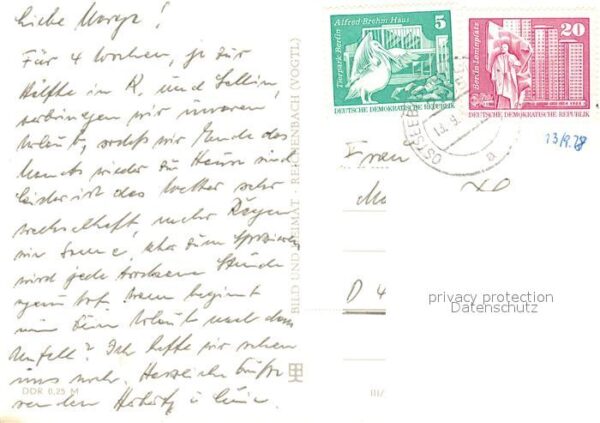 Liebe
Für 4 Wochen, je zur
Hälfte in K. und Sellin,
verbringen wir unseren
Urlaub, sodaß wir Ende des
Monats wieder zu Hause sind
Leider ist das Wetter sehr
wechselhaft, mehr Regen
wie Sonne, aber zum Spazieren
wird jede trockene Stunde
genutzt. Wann beginnt
nun Dein Urlaub nach dem
Unfall? Ich hoffe wir sehen
uns noch. Herzliche Grüße
von den
DDR 0,25 M
BILD UND HEIMAT · REICHENBACH (VOGTL)
Alfred Brehm Haus
Tierpark Berlin
5
DEUTSCHE DEMOKRATISCHE REPUBLIK
20
Berlin Leninplatz
DEUTSCHE DEMOKRATISCHE REPUBLIK
OSTSEEB
13.9.
a
13/9.78
Frau
D 4
III/
privacy protection
Datenschutz